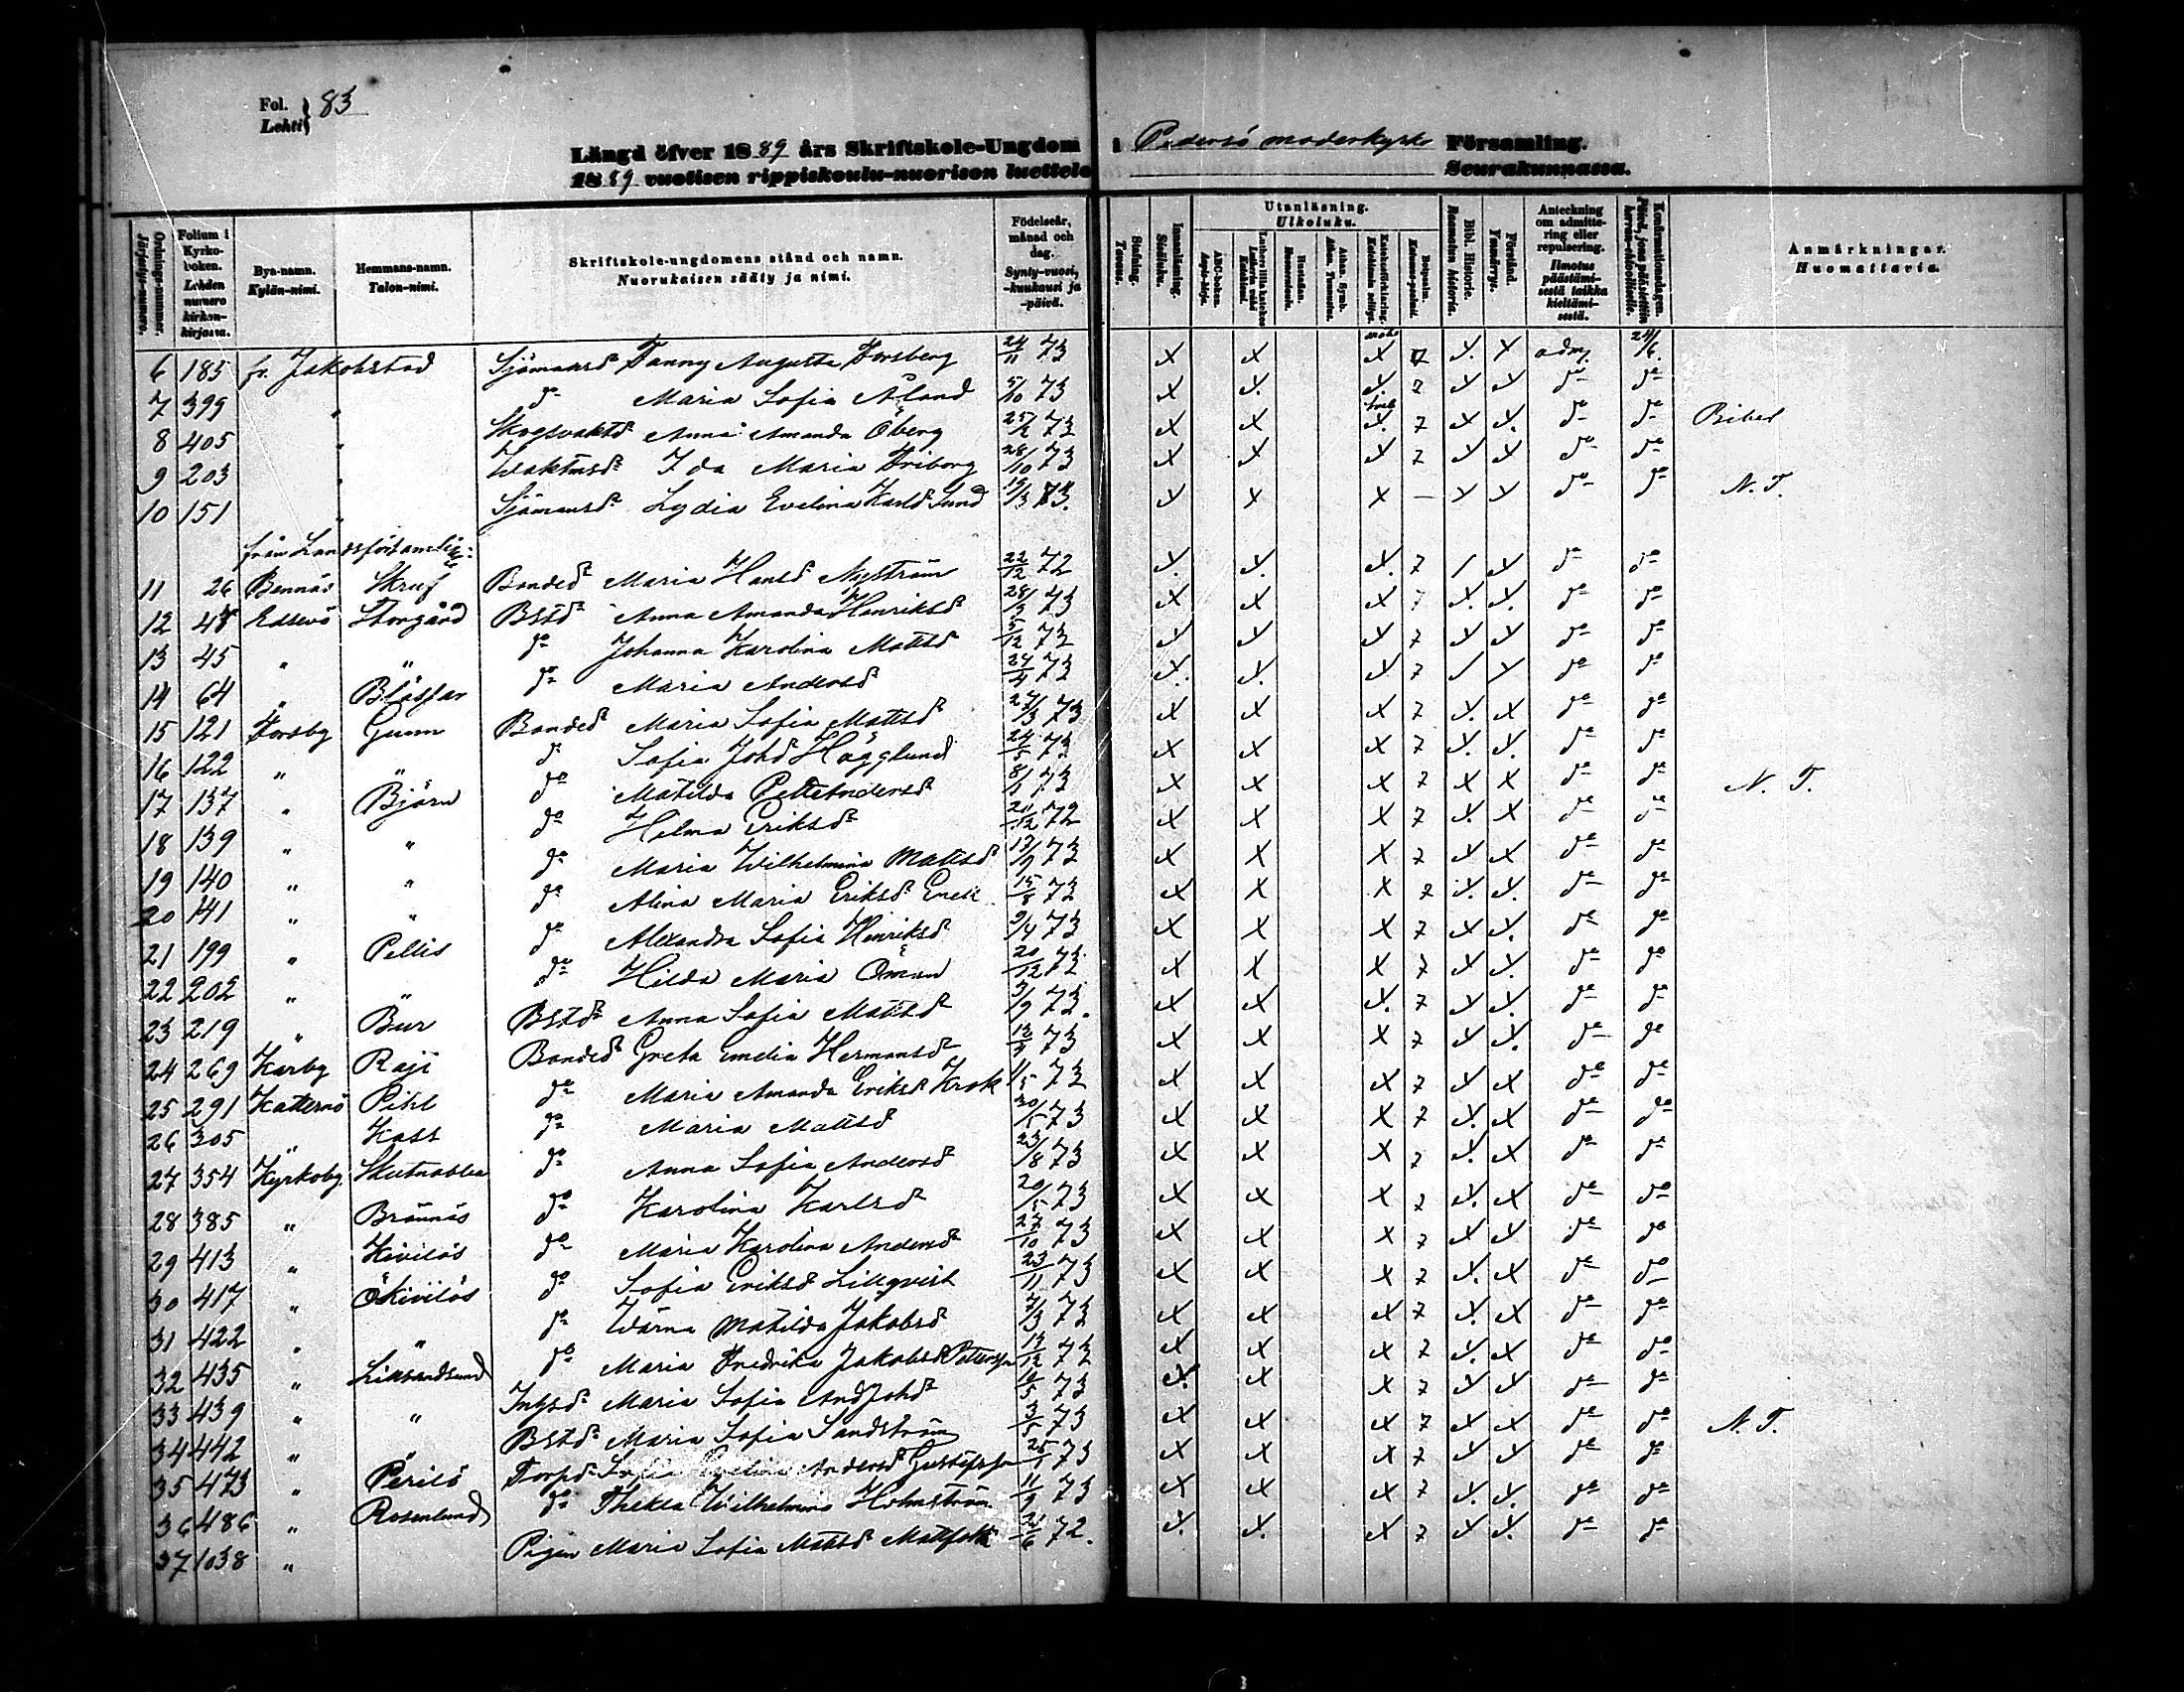 Fol. 83
Lehti
Längd öfver 1889 års Skriftskole-Ungdom i Pedersö moderkyrko Församling.
1889 vuotisen rippikoulu-nuorison luettelo Seurakunnassa.
Ordnings-nummer. Järjestys-numero.
Folium i Kyrko-boken. Lehden numero kirkon-kirjassa.
Bya-namn. Kylän-nimi.
Hemmans-namn. Talon-nimi.
Skriftskole-ungdomens stånd och namn. Nuorukaisen sääty ja nimi.
Födelseår, månad och dag. Synty-vuosi, -kuukausi ja -päivä.
Stafning. Tavaus.
Innanläsning. Sisäluku.
Utanläsning. Ulkoluku.
ABC-boken. Aapis-kirja.
Luthers lilla kateches Lutherin vähä Katekismi.
Hustaflan. Huoneentaulu.
Athan. Symb. Athan. Tunnustus.
Bibl. Historie. Raamatun historia.
Förstånd. Ymmärrys.
Anteckning om admittering eller repulsering. Ilmoitus päästämisestä taikka kieltämisestä.
Anmärkningar. Huomattavia.
6 185 fr. Jakobstad Sjömansd Fanny Augusta Forsberg 24/11 73 x x x 7 x x adm. 24/6.
7 399 " do Maria Sofia Åland 5/10 73 x x x 7 x x do do
8 405 " Skogsvaktd Anna Amanda Öberg 25/2 73 x x x 7 x x do do Bibel
9 203 " Waktmsd Ida Maria Friborg 28/10 73 x x x 7 x x do do
10 151 " Sjömansd Lydia Evelina Karlsd Sund 73. x x x – x x do do N. T.
från Landsförsamling:
11 26 Bennäs Skruf Bonded Maria Hansd Nyström 22/12 72 x x x 7 / x do do
12 Edsevö Storgård Bstd Anna Amanda Henriksd 28/3 73 x x x 7 x x do do
13 45 " " do Johanna Karolina Mattsd 5/12 73 x x x 7 x x do do
14 64 " do Maria Andersd 73 x x x 7 / x do do
15 121 Forsby Gunn Bonded Maria Sofia Mattsd 27/3 73 x x x 7 x x do do
16 122 " " do Sofia Johsd Hägglund 24/5 73 x x x 7 x x do do
17 137 " Björn do Matilda Pettsandersd 8/1 73 x x x 7 x x do do N. T.
18 139 " " do Hilma Eriksd 21/12 72 x x x 7 x x do do
19 140 " " do Maria Wilhelmina Mattsd 73 x x x 7 x x do do
20 141 " " do Alina Maria Eriksd 15/8 73 x x x 7 x x do do
21 199 " Pellis do Alexandra Sofia Hinriksd 9/4 73 x x x 7 x x do do
22 202 " " do Hilda Maria Öman 20/12 72 x x x 7 x x do do
23 219 " Bur Bstd Anna Sofia Mattsd 3/9 73. x x x 7 x x do do
24 269 Karby Raji Bonded Greta Emelia Hermansd 73 x x x 7 x x do do
25 291 Katternö Pihl do Maria Amanda Eriksd Krok 73 x x x 7 x x do do
26 305 " Kass do Maria Mattsd 30/5 73 x x x 7 x x do do
27 354 Kyrkoby Skutnabba do Anna Sofia Andersd 23/8 73 x x x 7 x x do do
28 385 " Brännäs do Karolina Karlsd 20/5 73 x x x 7 x x do do
29 413 " Kivilös do Maria Karolina Andersd 27/10 73 x x x 7 x x do do
30 417 " Ö Kivilös do Sofia Eriksd Lillqvist 23/11 73 x x x 7 x x do do
31 422 " " do Wärna Matilda Jakobsd 7/3 73 x x x 7 x x do do
32 435 " do Maria Fredrika Jakobsd Petterson 13/12 72 x x x 7 x x do do
33 439 " " Inhsd Maria Sofia And Johsd 73 x x x 7 x x do do
34 442 " Bstd Maria Sofia Sandström 3/5 73 x x x 7 x x do do N. T.
35 473 " Perilö Torpd Andersd Gustafsson 25/1 73 x x x 7 x x do do
36 486 " Rosenlund do Thekla Wilhelmina Holmström 11/9 73 x x x 7 x x do do
37 1038 " Pigan Maria Sofia Mattsd Mattfolk 72. x x x 7 x x do do